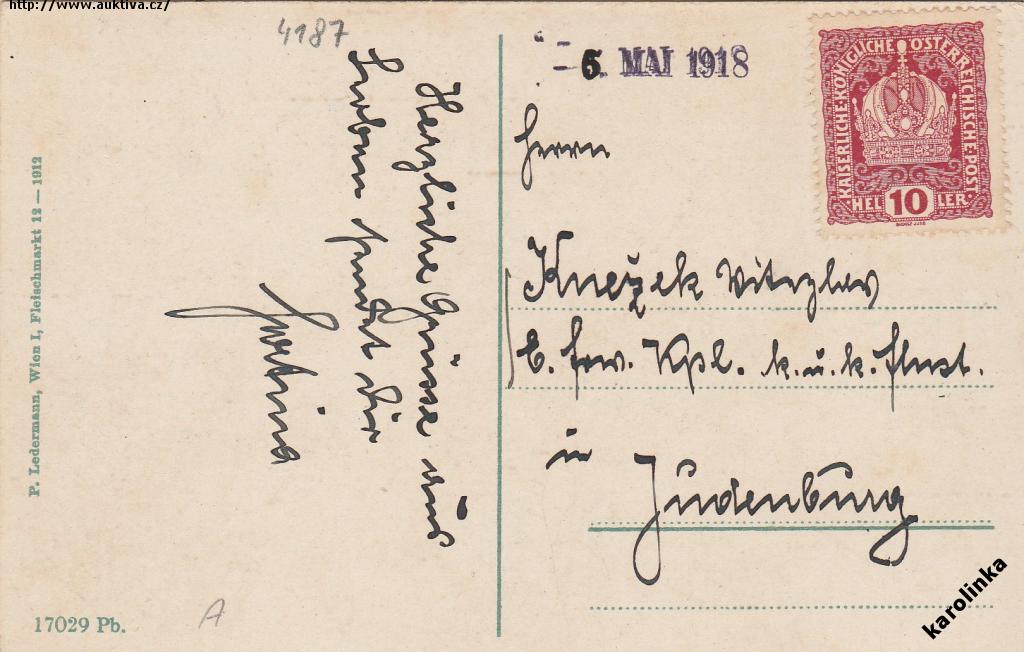 http://www.auktiva.cz/
4187
Herzliche Grüsse aus
sendet dir
P. Ledermann, Wien I, Fleischmarkt 12 — 1912
17029 Pb.
A
6. MAI 1918
KAISERLICHE·KÖNIGLICHE ÖSTERREICHISCHE·POST
HEL 10 LER
Herrn
Knežek Vitezlav
E. frw. Kpl. k. u. k.
in
Judenburg
karolinka